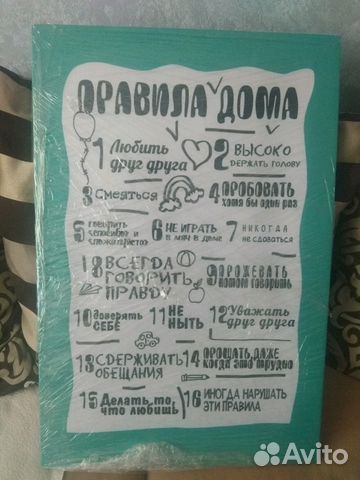 ПРАВИЛА ДОМА
1 Любить друг друга
2 ВЫСОКО ДЕРЖАТЬ ГОЛОВУ
3 Смеяться
4 ПРОБОВАТЬ хотя бы один раз
5 говорить спасибо и пожалуйста
6 НЕ ИГРАТЬ В МЯЧ В ДОМЕ
7 НИКОГДА НЕ СДАВАТЬСЯ
8 ВСЕГДА ГОВОРИТЬ ПРАВДУ
9 ПРОЖЕВАТЬ ПОТОМ ГОВОРИТЬ
10 Доверять СЕБЕ
11 НЕ НЫТЬ
12 Уважать друг друга
13 СДЕРЖИВАТЬ ОБЕЩАНИЯ
14 ПРОЩАТЬ, ДАЖЕ КОГДА ЭТО ТРУДНО
15 Делать то, что любишь
16 ИНОГДА НАРУШАТЬ ЭТИ ПРАВИЛА
Avito